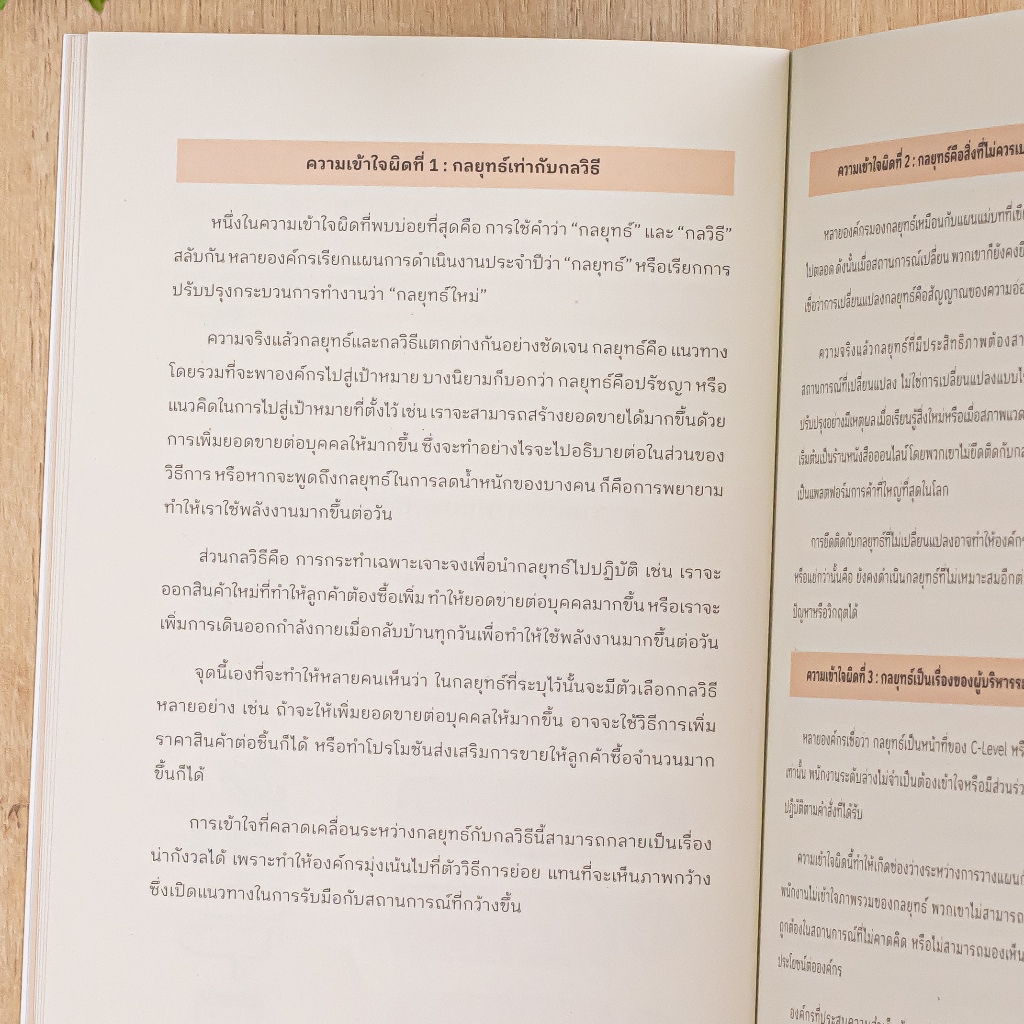 ความเข้าใจผิดที่ 1 : กลยุทธ์เท่ากับกลวิธี
หนึ่งในความเข้าใจผิดที่พบบ่อยที่สุดคือ การใช้คำว่า “กลยุทธ์” และ “กลวิธี”
สลับกัน หลายองค์กรเรียกแผนการดำเนินงานประจำปีว่า “กลยุทธ์” หรือเรียกการ
ปรับปรุงกระบวนการทำงานว่า “กลยุทธ์ใหม่”
ความจริงแล้วกลยุทธ์และกลวิธีแตกต่างกันอย่างชัดเจน กลยุทธ์คือ แนวทาง
โดยรวมที่จะพาองค์กรไปสู่เป้าหมาย บางนิยามก็บอกว่า กลยุทธ์คือปรัชญา หรือ
แนวคิดในการไปสู่เป้าหมายที่ตั้งไว้ เช่น เราจะสามารถสร้างยอดขายได้มากขึ้นด้วย
การเพิ่มยอดขายต่อบุคคลให้มากขึ้น ซึ่งจะทำอย่างไรจะไปอธิบายต่อในส่วนของ
วิธีการ หรือหากจะพูดถึงกลยุทธ์ในการลดน้ำหนักของบางคน ก็คือการพยายาม
ทำให้เราใช้พลังงานมากขึ้นต่อวัน
ส่วนกลวิธีคือ การกระทำเฉพาะเจาะจงเพื่อนำกลยุทธ์ไปปฏิบัติ เช่น เราจะ
ออกสินค้าใหม่ที่ทำให้ลูกค้าต้องซื้อเพิ่ม ทำให้ยอดขายต่อบุคคลมากขึ้น หรือเราจะ
เพิ่มการเดินออกกำลังกายเมื่อกลับบ้านทุกวันเพื่อทำให้ใช้พลังงานมากขึ้นต่อวัน
จุดนี้เองที่จะทำให้หลายคนเห็นว่า ในกลยุทธ์ที่ระบุไว้นั้นจะมีตัวเลือกกลวิธี
หลายอย่าง เช่น ถ้าจะให้เพิ่มยอดขายต่อบุคคลให้มากขึ้น อาจจะใช้วิธีการเพิ่ม
ราคาสินค้าต่อชิ้นก็ได้ หรือทำโปรโมชันส่งเสริมการขายให้ลูกค้าซื้อจำนวนมาก
ขึ้นก็ได้
การเข้าใจที่คลาดเคลื่อนระหว่างกลยุทธ์กับกลวิธีนี้สามารถกลายเป็นเรื่อง
น่ากังวลได้ เพราะทำให้องค์กรมุ่งเน้นไปที่ตัววิธีการย่อย แทนที่จะเห็นภาพกว้าง
ซึ่งเปิดแนวทางในการรับมือกับสถานการณ์ที่กว้างขึ้น
ความเข้าใจผิดที่ 2 : กลยุทธ์คือสิ่งที่ไม่ควร
หลายองค์กรมองกลยุทธ์เหมือนกับแผนแม่บทที่
ไปตลอด ดังนั้นเมื่อสถานการณ์เปลี่ยน พวกเขาก็ยังคง
เชื่อว่าการเปลี่ยนแปลงกลยุทธ์คือสัญญาณของความ
ความจริงแล้วกลยุทธ์ที่มีประสิทธิภาพต้อง
สถานการณ์ที่เปลี่ยนแปลง ไม่ใช่การเปลี่ยนแปลงแบบ
ปรับปรุงอย่างมีเหตุผลเมื่อเรียนรู้สิ่งใหม่หรือเมื่อสภาพแวด
เริ่มต้นเป็นร้านหนังสือออนไลน์ โดยพวกเขาไม่ยึดติดกับ
เป็นแพลตฟอร์มการค้าที่ใหญ่ที่สุดในโลก
การยึดติดกับกลยุทธ์ที่ไม่เปลี่ยนแปลงอาจทำให้องค์กร
หรือแย่กว่านั้นคือ ยังคงดำเนินกลยุทธ์ที่ไม่เหมาะสมอีก
ปัญหาหรือวิกฤตได้
ความเข้าใจผิดที่ 3 : กลยุทธ์เป็นเรื่องของผู้บริหาร
หลายองค์กรเชื่อว่า กลยุทธ์เป็นหน้าที่ของ C-Level
เท่านั้น พนักงานระดับล่างไม่จำเป็นต้องเข้าใจหรือมีส่วน
ปฏิบัติตามคำสั่งที่ได้รับ
ความเข้าใจผิดนี้ทำให้เกิดช่องว่างระหว่างการวางแผน
พนักงานไม่เข้าใจภาพรวมของกลยุทธ์ พวกเขาไม่สามารถ
ถูกต้องในสถานการณ์ที่ไม่คาดคิด หรือไม่สามารถมองเห็น
ประโยชน์ต่อองค์กร